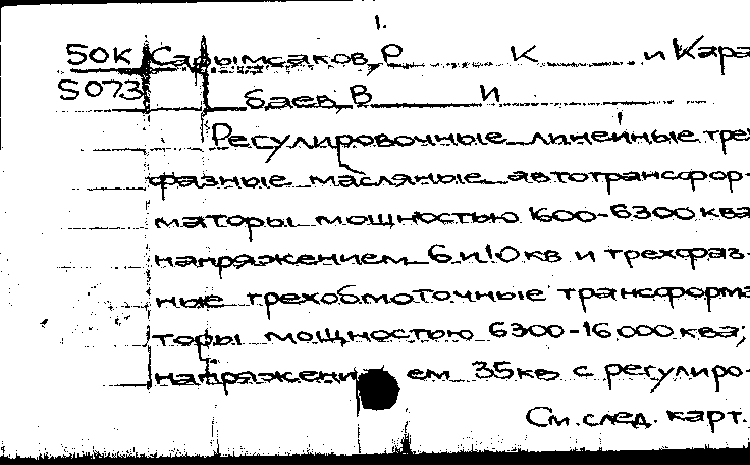 1.
50К Сарымсаков, Р К и Кара
S073 баев, В И
Регулировочные линейные трех
фазные масляные автотрансфор-
маторы мощностью 1600-6300 ква
напряжением 6 и 10 кв и трехфаз-
ные трехобмоточные трансформа
торы мощностью 6300-16000 ква,
напряжением 35 кв с регулиро-
См. след. карт.